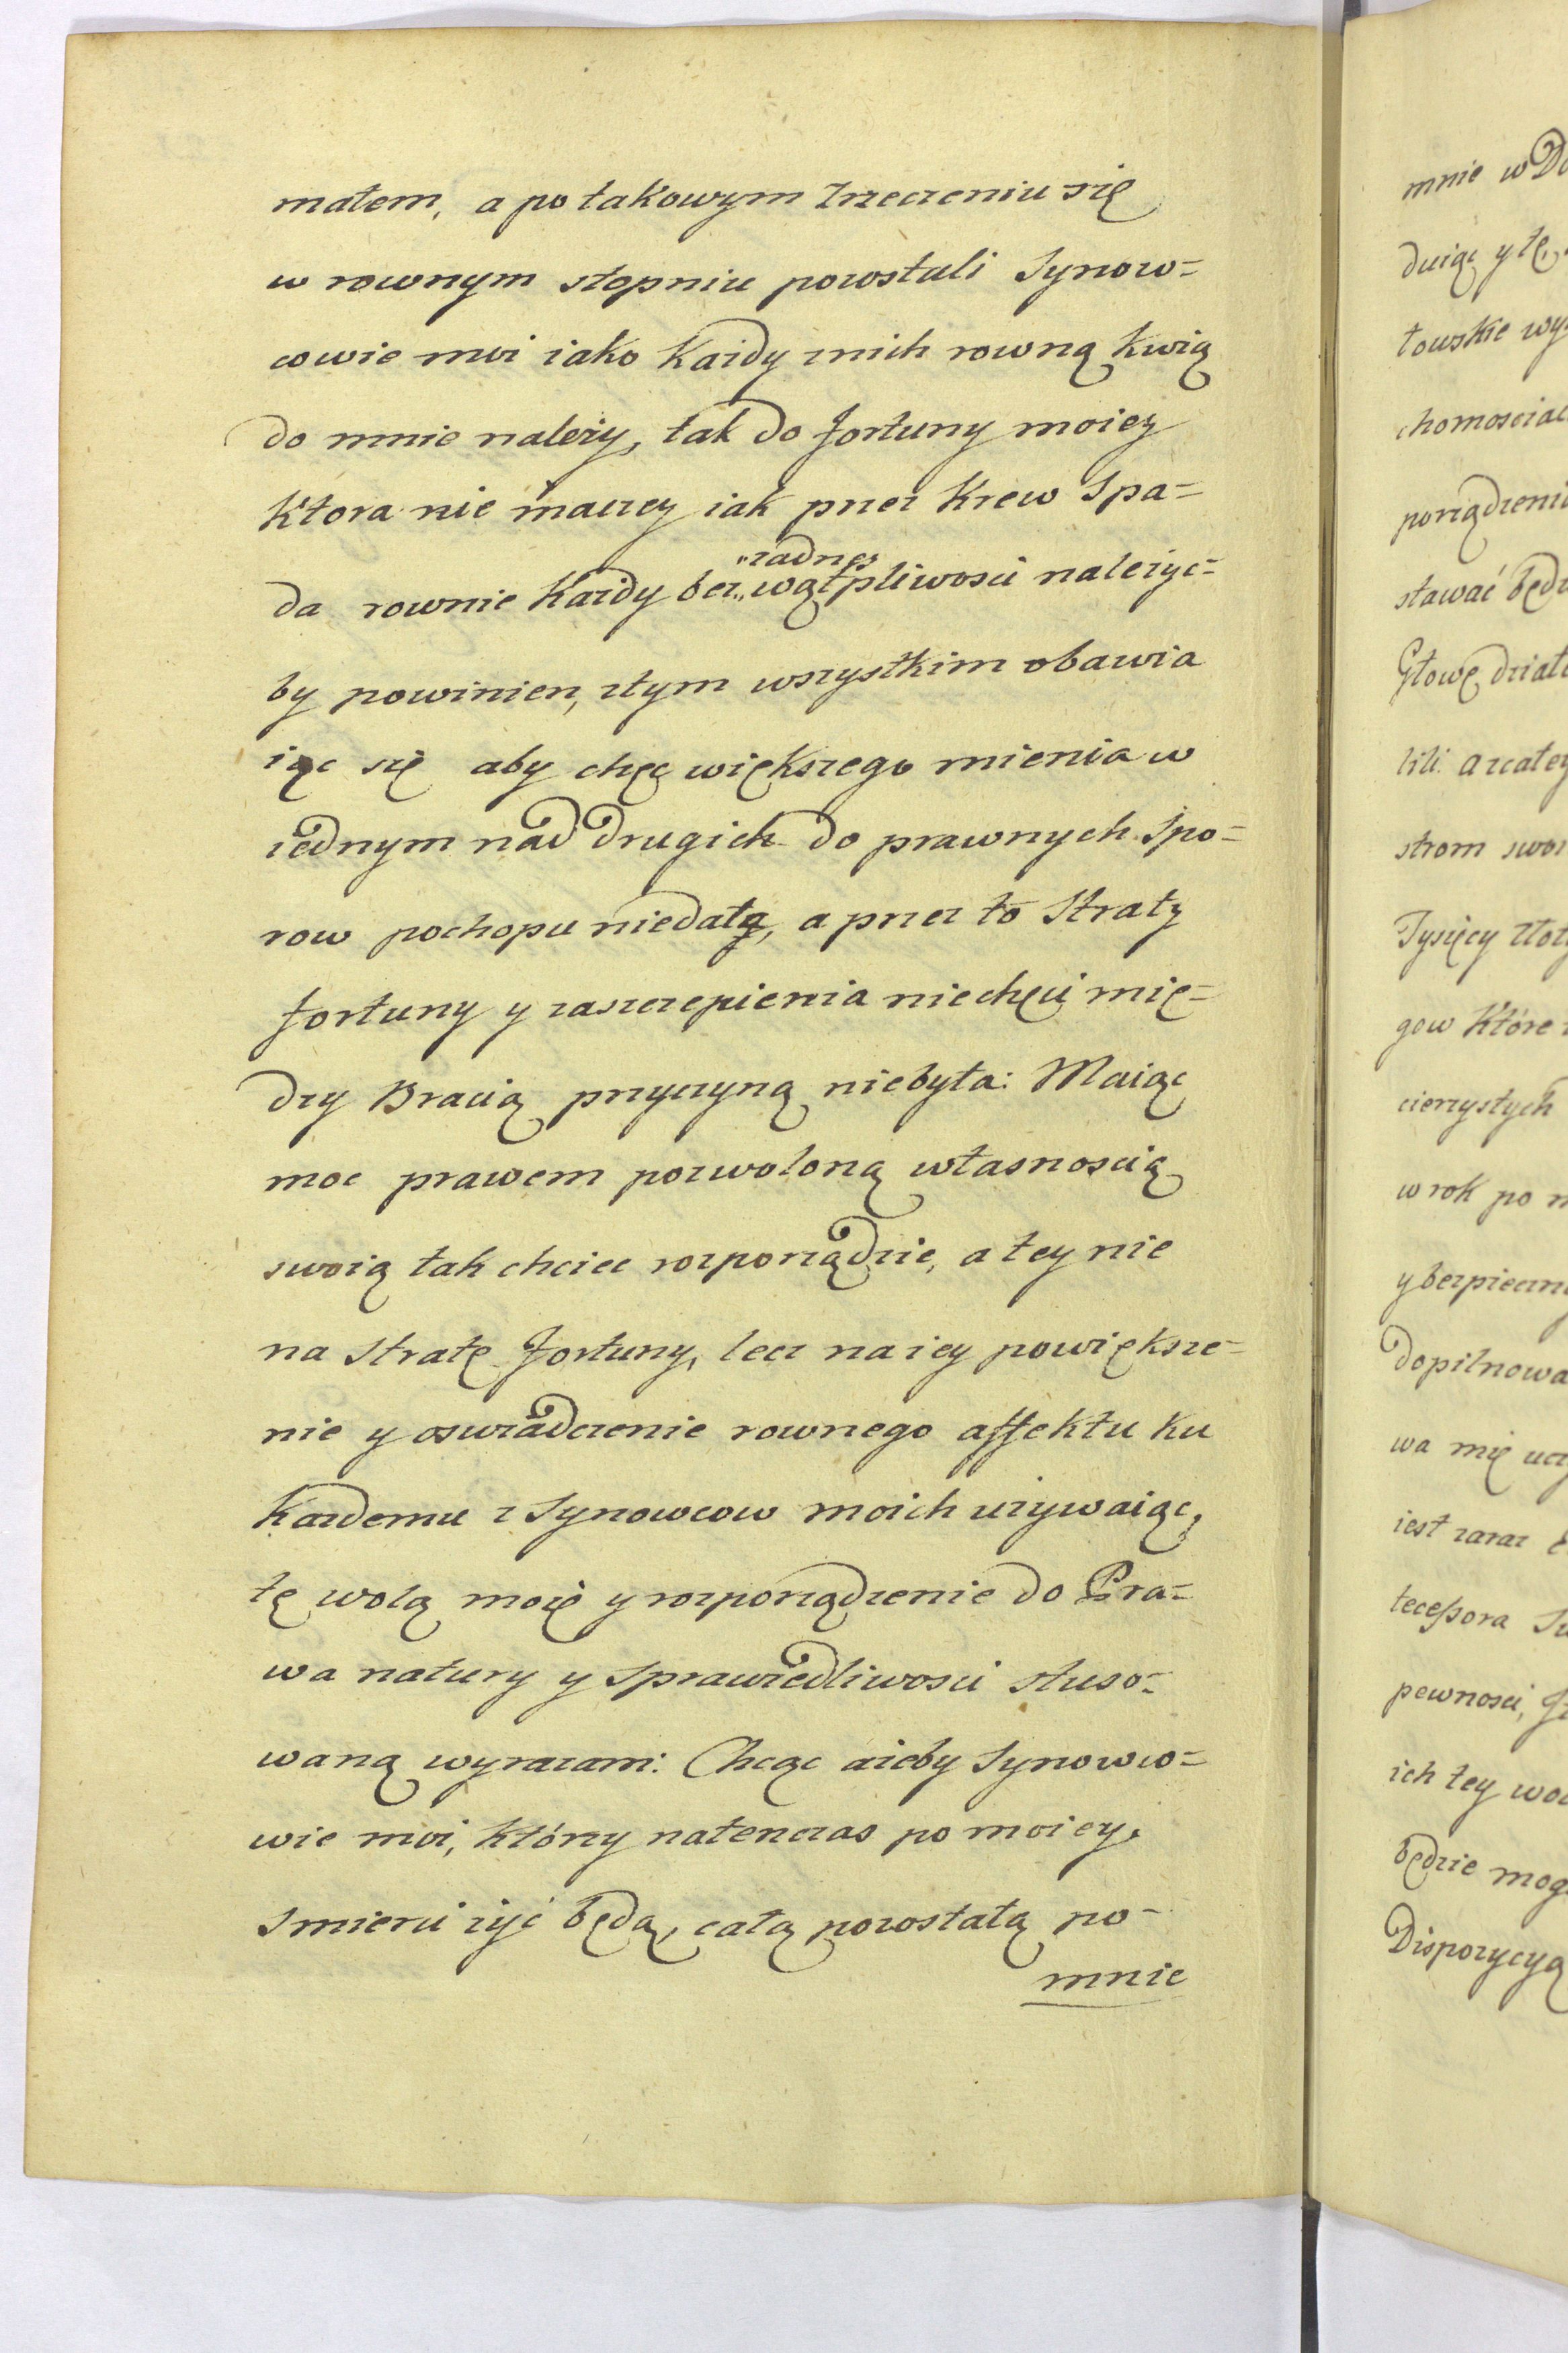 małem, a po takowym zrzeczeniu się
w rownym stopniu powstali Synow=
cowie moi iako Kazdy znich rowną kwią
do mnie należy, tak do fortuny moiey
Ktora nie inaczey iak przez Krew Spa=
da rownie Kazdy bez „żadney wątpliwosci należyc=
by powinien, ztym wszystkim obawia
iąc się aby chęc większego mienia w
iednym nad drugich do prawnych Spo=
row pochopu niedała, a przez to Straty
fortuny y zaszczepienia niechęci mię=
dzy Bracią przyczyną niebyła: Maiąc
moc prawem pozwoloną własnoscią
swoią tak chciec rozporządzic, a tey nie
na Stratę fortuny, lecz na iey powiększe=
nie y oswiadczenie rownego affektu ku
Kazdemu z Synowcow moich uzywaiąc,
tę wolą moię y rozporządzenie do Pra=
wa natury y Sprawiedliwosci stuso=
waną wyrazam: Chcąc ażeby Synowco=
wie moi, którzy natenczas po moiey
Smierci żyć będą, całą pozostałą po=
mnie
mnie w Do
duiąc y tę
towskie wy
chomosciac
porządzeni
stawać będz
Głowę dziale
lili. a zcałey
strom swoi
Tysięcy Złoty
gow Które
cierzystych
w rok po m
y bezpieczn
dopilnowa
wa mię ucz
iest zaraz
tecessora Su
pewnosci,
ich tey wol
będzie mog
Dispozycyą